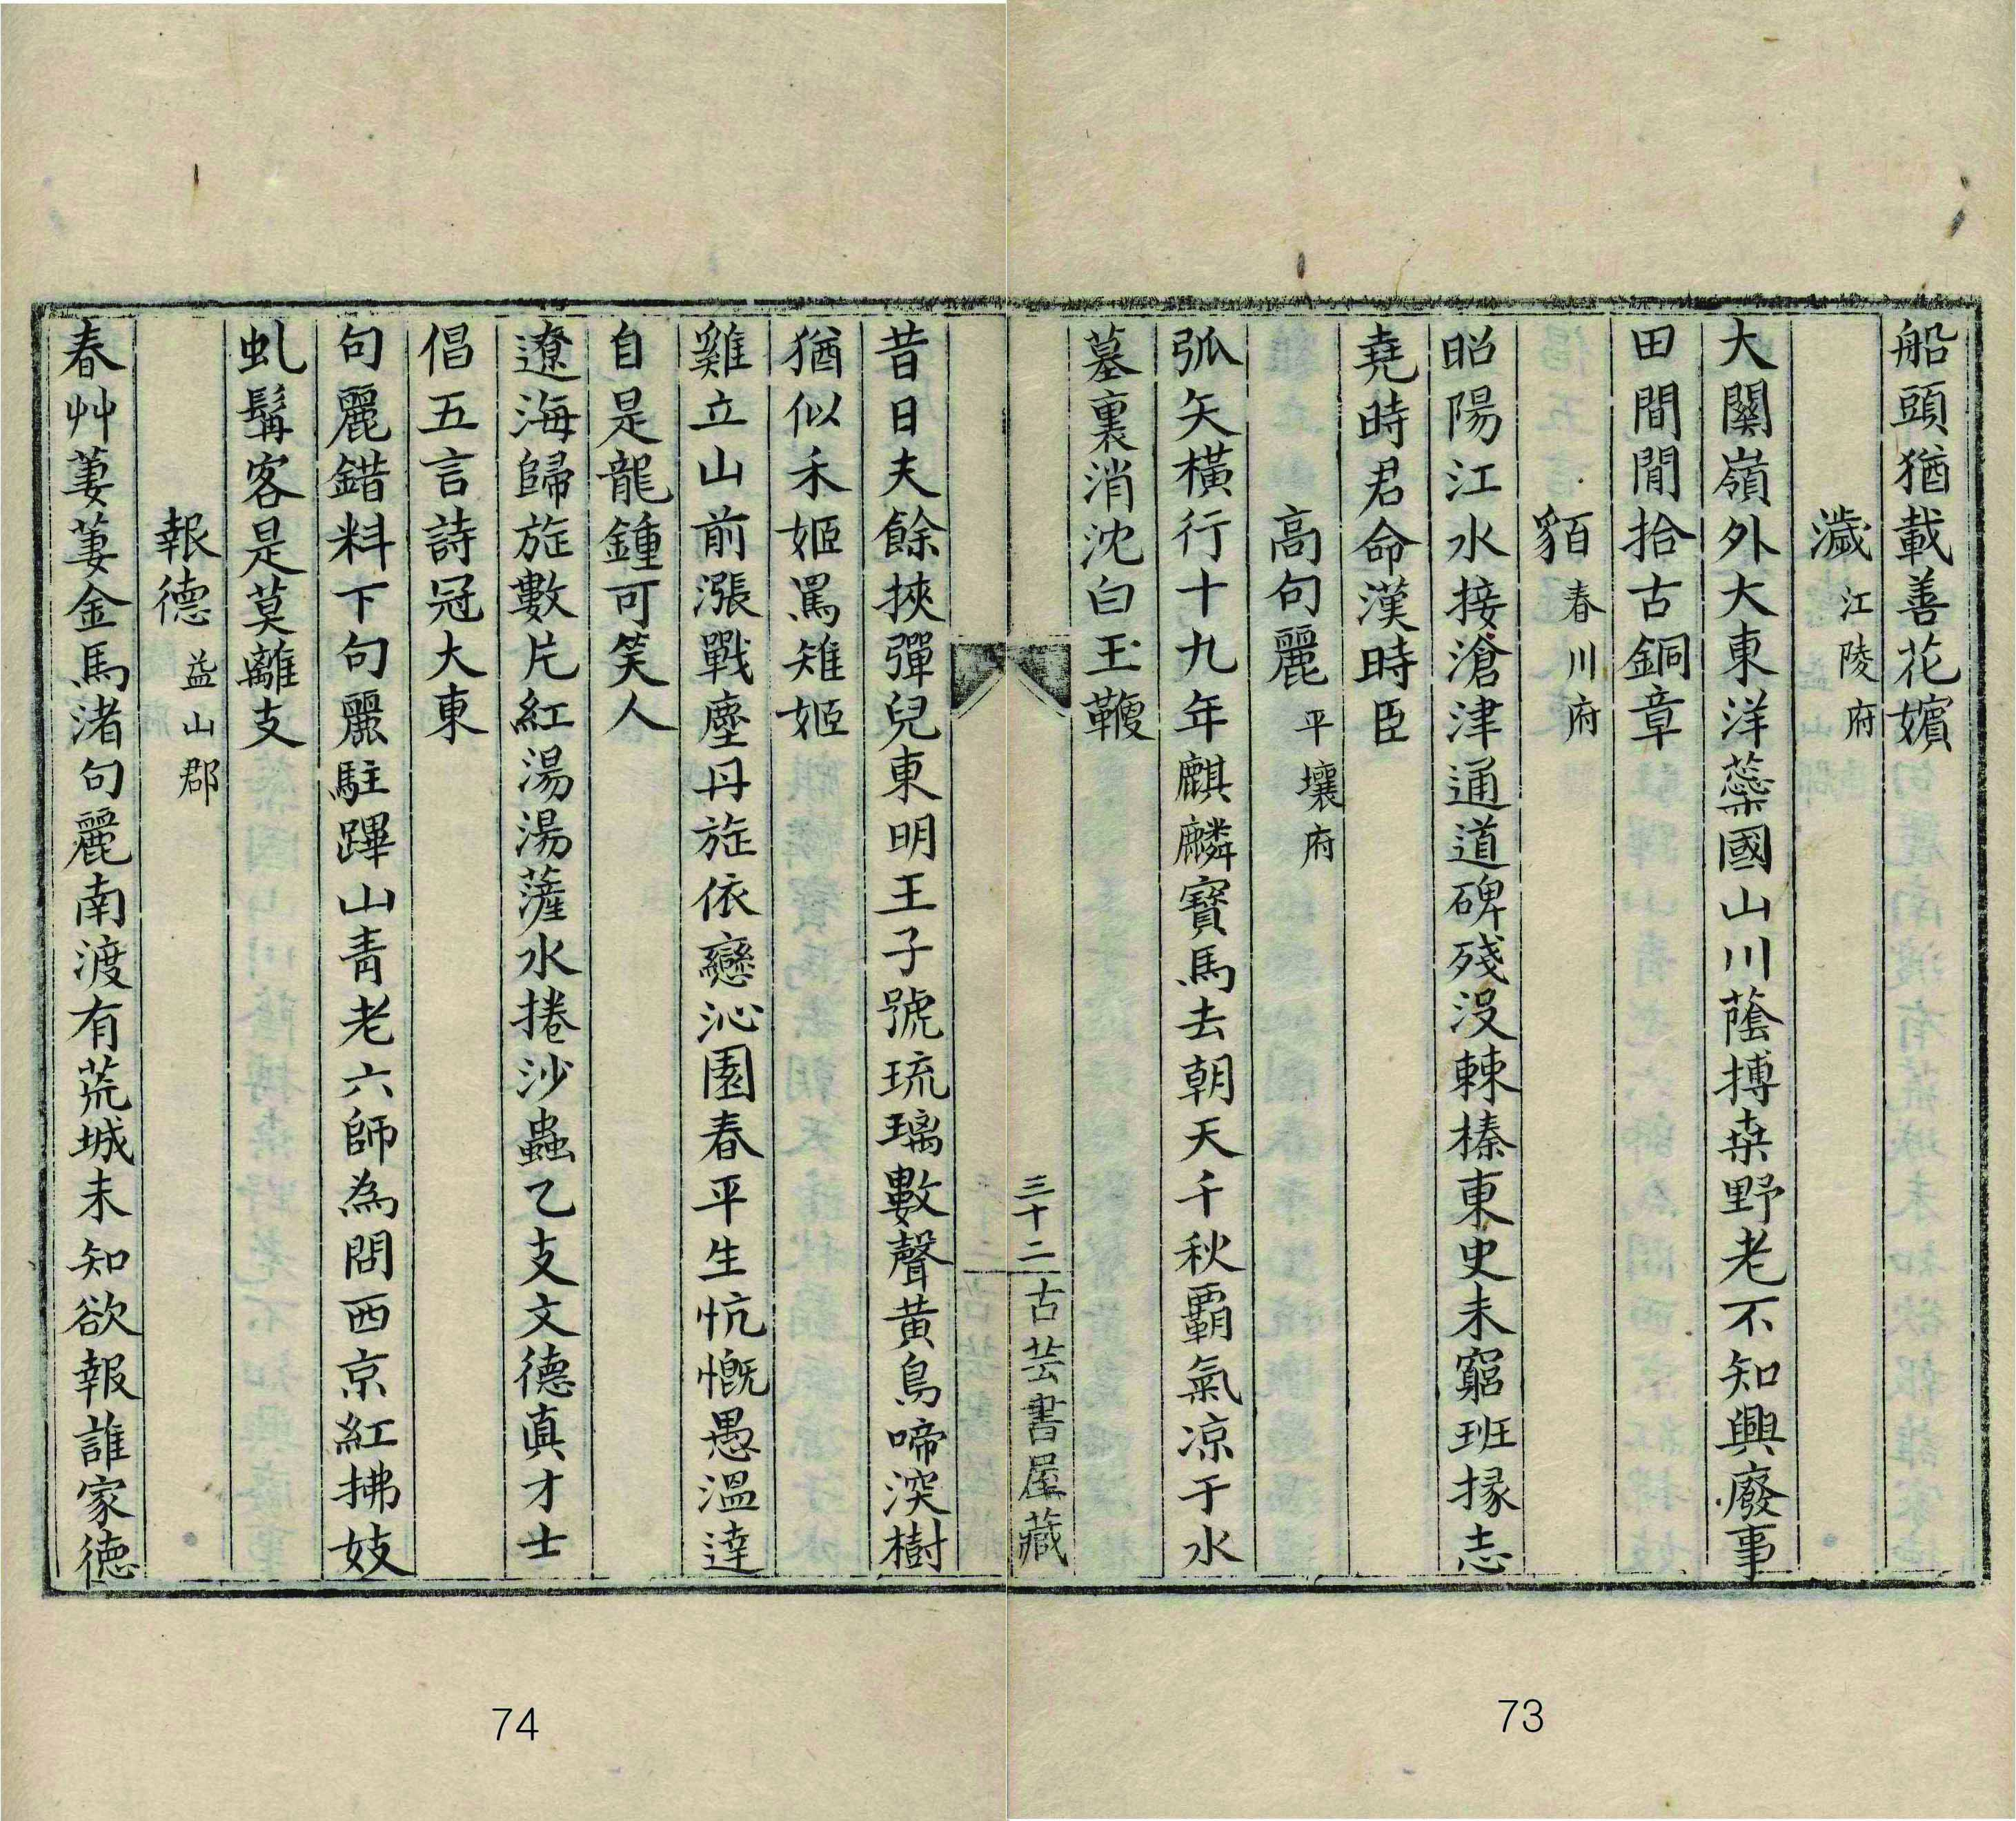 船頭猶載善花嬪
濊 江陵府
大關嶺外大東洋蘂國山川蔭搏桒野老不知興廢事
田間閒拾古銅章
貊 春川府
昭陽江水接滄津通道碑殘沒棘榛東史未窮班掾志
堯時君命漢時臣
高句麗 平壤府
弧矢橫行十九年麒麟寶馬去朝天千秋覇氣凉于水
墓裏消沈白玉鞭
三十二 古芸書屋藏
昔日夫餘挾彈兒東明王子號琉璃數聲黃鳥啼深樹
猶似禾姬罵雉姬
雞立山前漲戰塵丹旌依戀沁園春平生忼慨愚溫達
自是龍鍾可笑人
遼海歸旌數片紅湯湯薩水捲沙蟲乙支文德眞才士
倡五言詩冠大東
句麗錯料下句麗駐蹕山靑老六師為問西京紅拂妓
虬髥客是莫離支
報德 益山郡
春艸萋萋金馬渚句麗南渡有荒城未知欲報誰家德
73
74